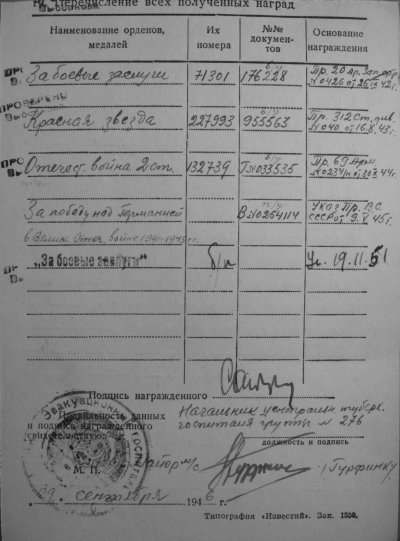 14. Перечисление всех полученных наград
Наименование орденов, медалей
Их номера
№№ документов
Основание награждения
За боевые заслуги 71301 б/у 176228 Пр. 20
№ 0426 42г.
ПРОВЕРЕНО
Красная звезда 227993 б/у 955563 Пр. 312 Ст. див.
№ 040 от 16.8.43г.
Отечест. война 2 ст. 132739 033535 Пр. 69 Арм.
44г.
За победу над Германией В №0254114 Указ Пр. В.С.
СССР от 9.V.45г.
в Велик. Отеч. войне 1941-1945 гг.
„За боевые заслуги“ б/н Ук. 19.11.51
Подпись награжденного
Правильность данных
и подписи награжденного
свидетельствую:
Начальник
госпиталя группы № 276
должность и подпись
Эвакуационный госпиталь
М. П.
Майор м/с
09. сентября 1946 г.
Типография «Известий». Зак. 1559.